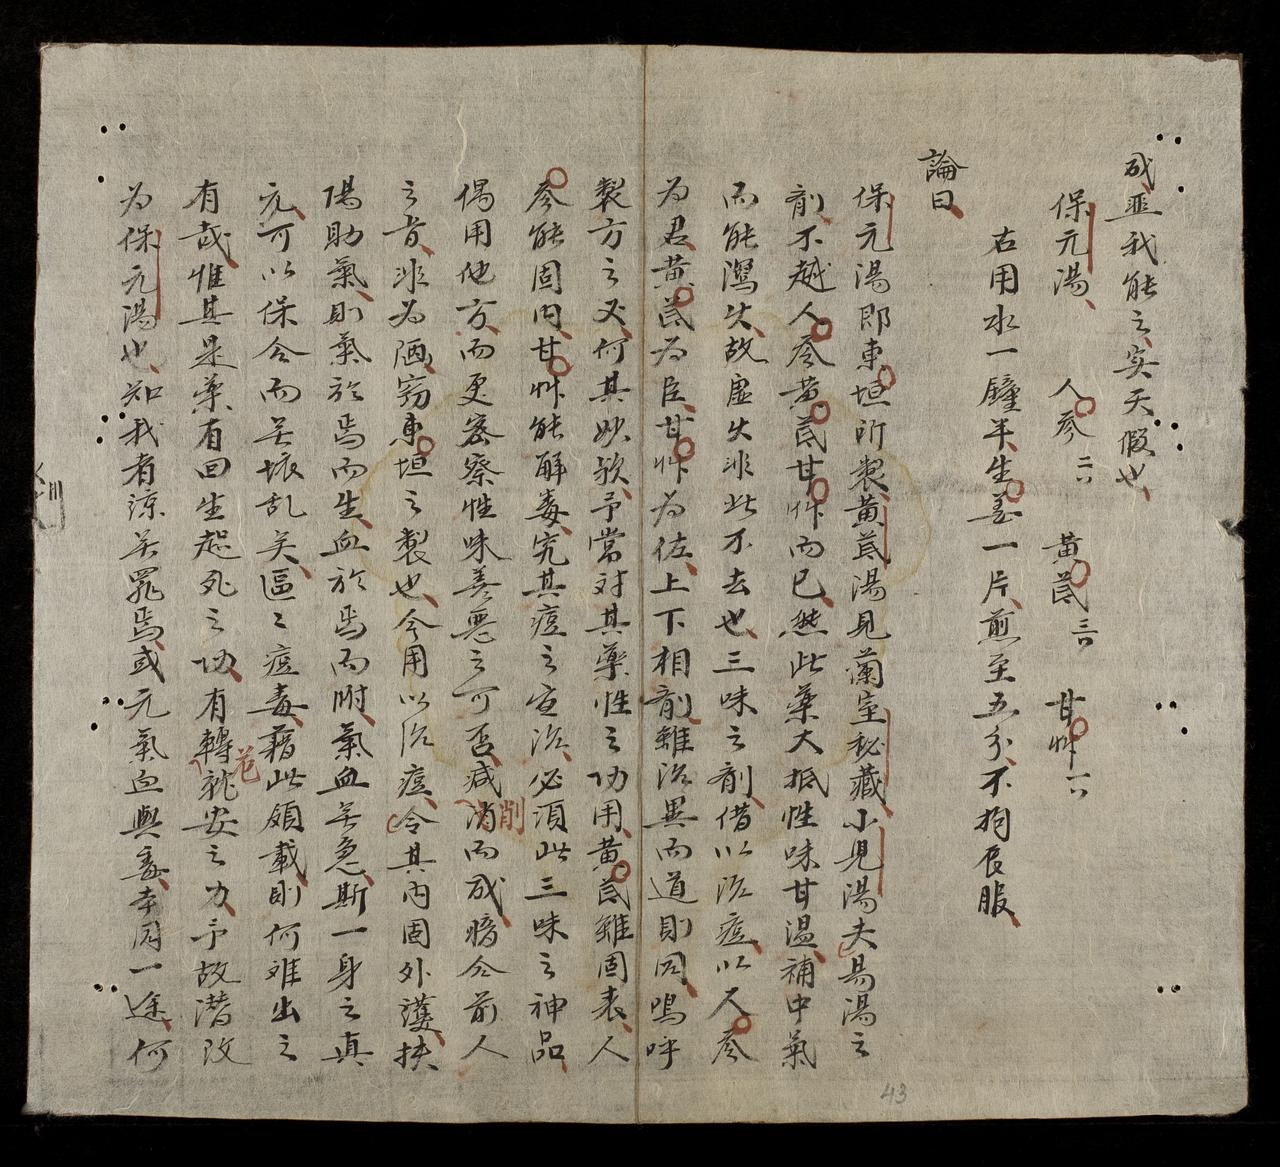 成匪我能之实天假也
保元湯 人参二 黄茋三 甘艸一
右用水一鍾半生姜一片煎至五分不拘辰服
論曰
保元湯即東垣所製黄茋湯見蘭室秘藏小児湯夫昜湯之
剤不越人参黄茋甘艸而已然此藥大抵性味甘温補中氣
而能瀉火故虚火非此不去也三味之剤借以治痘以人参
为君黄茋为臣甘艸为佐上下相剤雖治異而道則同鳴呼
製方之义何其妙欤予常对其藥性之功用黄茋雖固表人
参能固内甘艸能觧毒究其痘之宜治必須此三味之神品
偈用他方而更宻察性味善悪之可否减消削而成痞仝前人
之旨非为陋窃東垣之製也今用以治痘令其内固外護扶
陽助氣則氣於焉而生血於焉而附氣血無急斯一身之真
元可以保合而無壊乱矣區〻痘毒藉此頗載則何难出之
有哉惟其是藥有回生起死之功有轉就危安之力予故潜改
为保元湯也知我者諒無罪焉或元氣血與毒本同一途何